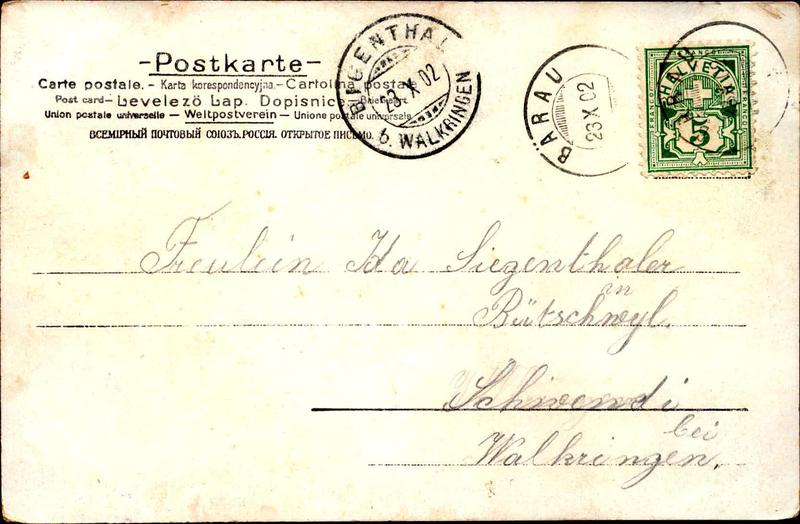 -Postkarte-
Carte postale. - Karta korespondencyjna. - Cartolina postale
Post card - Levelező Lap. Dopisnice
Union postale universelle - Weltpostverein - Unione postale universale
ВСЕМІРНЫЙ ПОЧТОВЫЙ СОЮЗЪ. РОССІЯ. ОТКРЫТОЕ ПИСЬМО.
BIGENTHAL
23 X 02
b. WALKRINGEN
BÄRAU
23 X 02
FRANCO
HELVETIA
5
Freulein Ida Siegenthaler
in
Bütschwyl.
Schwendi
bei
Walkringen.